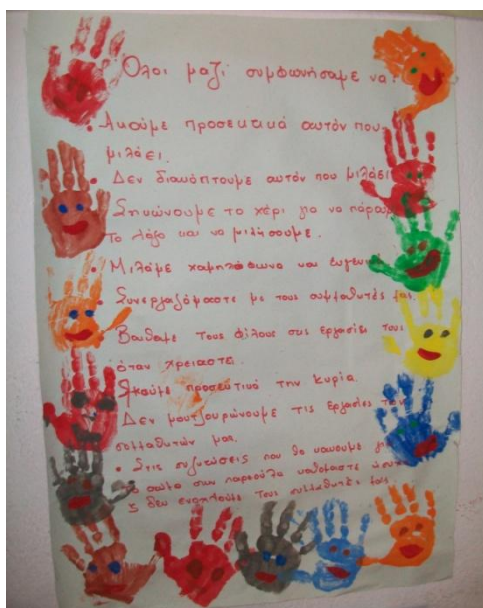 Όλοι μαζί συμφωνήσαμε να:
• Ακούμε προσεκτικά αυτόν που
μιλάει.
• Δεν διακόπτουμε αυτόν που μιλάει
Σηκώνουμε το χέρι για να πάρουμε
το λόγο και να μιλήσουμε.
• Μιλάμε χαμηλόφωνα και ευγενικά
• Συνεργαζόμαστε με τους συμμαθητές μας.
• Βοηθάμε τους φίλους στις εργασίες τους
όταν χρειαστεί.
Ακούμε προσεκτικά την κυρία.
Δεν μουτζουρώνουμε τις εργασίες των
συμμαθητών μας.
• Στις συζητήσεις που θα κάνουμε
στην παρεούλα καθόμαστε
δεν ενοχλούμε τους συμμαθητές μας